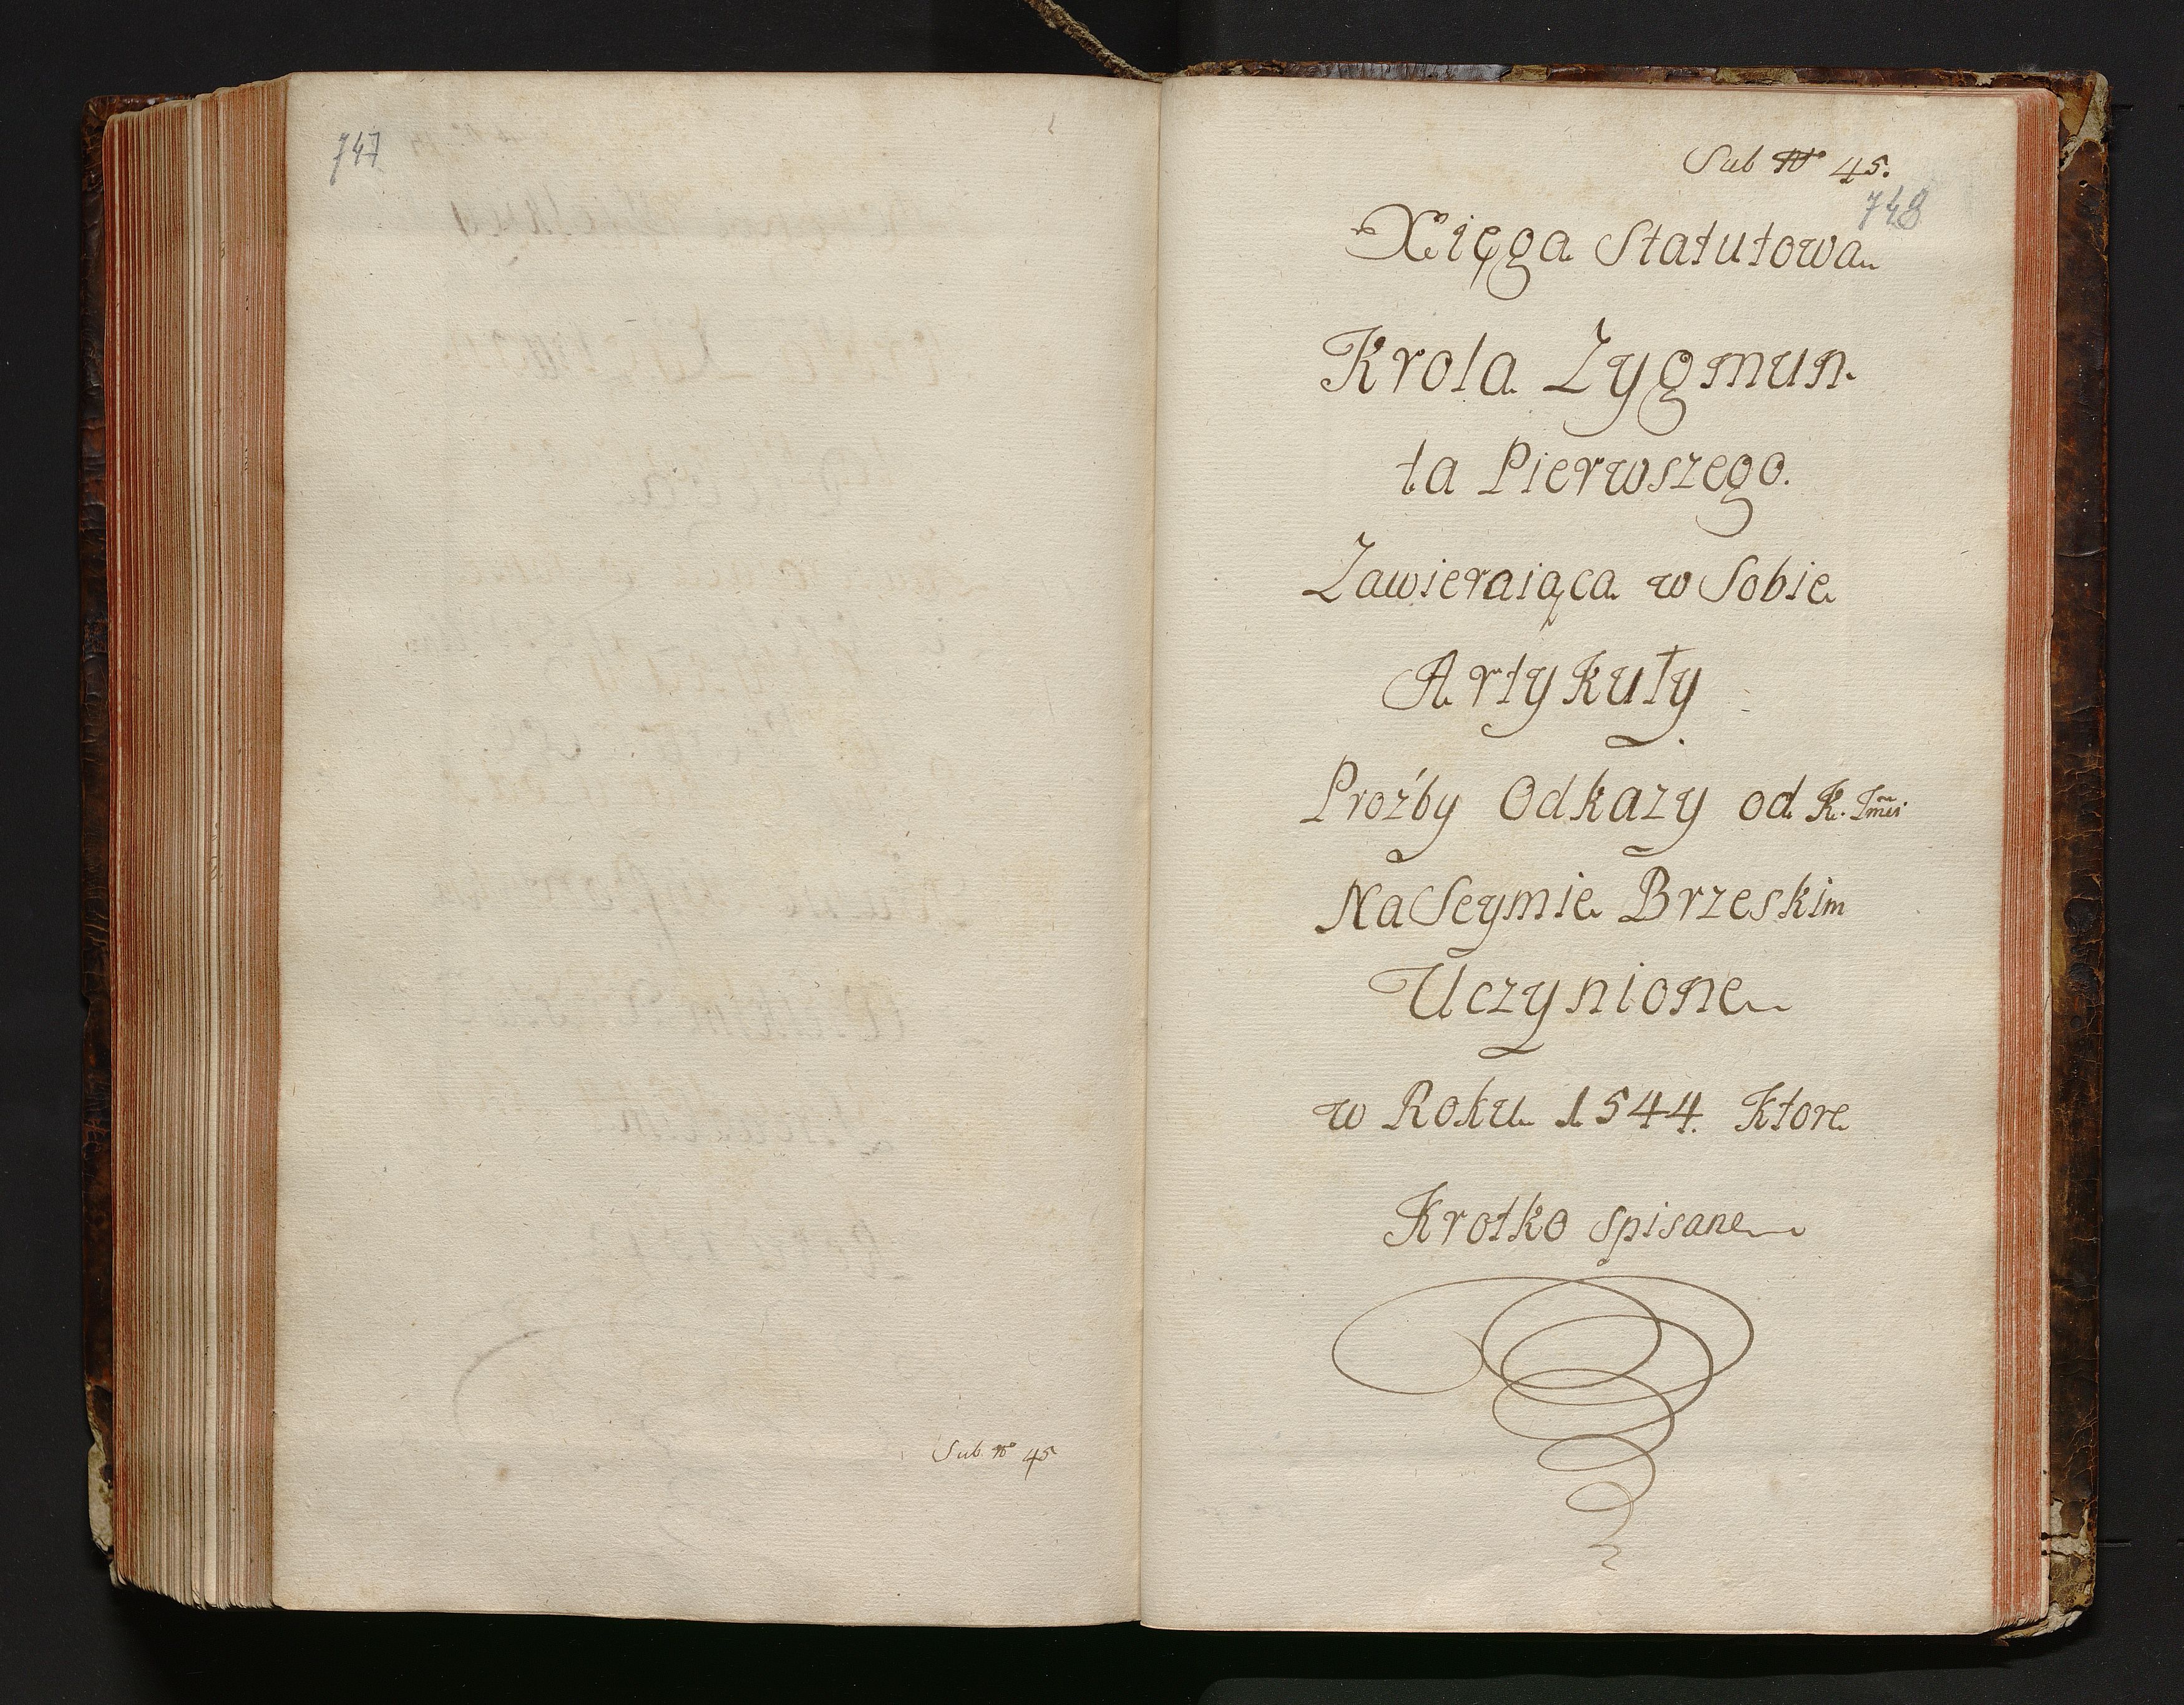 747
Sub No 45
Sub No 45.
748
Xięga Statutowa
Krola Zygmun-
ta Pierwszego.
Zawieraiąca w Sobie
Artykuły
Proźby Odkazy od K. Jm̃ci
Na Seymie Brzeskim
Uczynione
w Roku 1544. Ktore
Krotko spisane